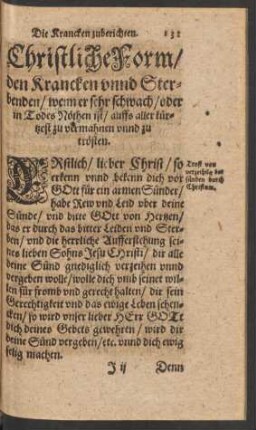 Die Krancken zuberichten. 131
Christliche Form/
den Krancken vnnd Ster-
benden/ wenn er sehr schwach/ oder
in Todes Nöthen ist/ auffs aller kür-
tzest zu vermahnen vnnd zu
trösten.
ERstlich/ lieber Christ/ so
erkenn vnnd bekenn dich vor
GOtt für ein armen Sünder/
habe Rew vnd Leid vber deine
Sünde/ vnd bitte GOtt von Hertzen/
das er durch das bitter Leiden vnd Ster-
ben/ vnd die herrliche Aufferstehung sei-
nes lieben Sohns Jesu CHristi/ dir alle
deine Sünd gnediglich verzeihen vnnd
vergeben wolle/ wolle dich vmb seinet wil-
len für fromb vnd gerecht halten/ dir sein
Gerechtigkeit vnd das ewige Leben schen-
cken/ so wird vnser lieber HErr GOtt
dich deines Gebets gewehren/ wird dir
deine Sünd vergeben/ etc. vnnd dich ewig
selig machen.
Trost von
vergebung der
sünden durch
Christum.
J ij Denn